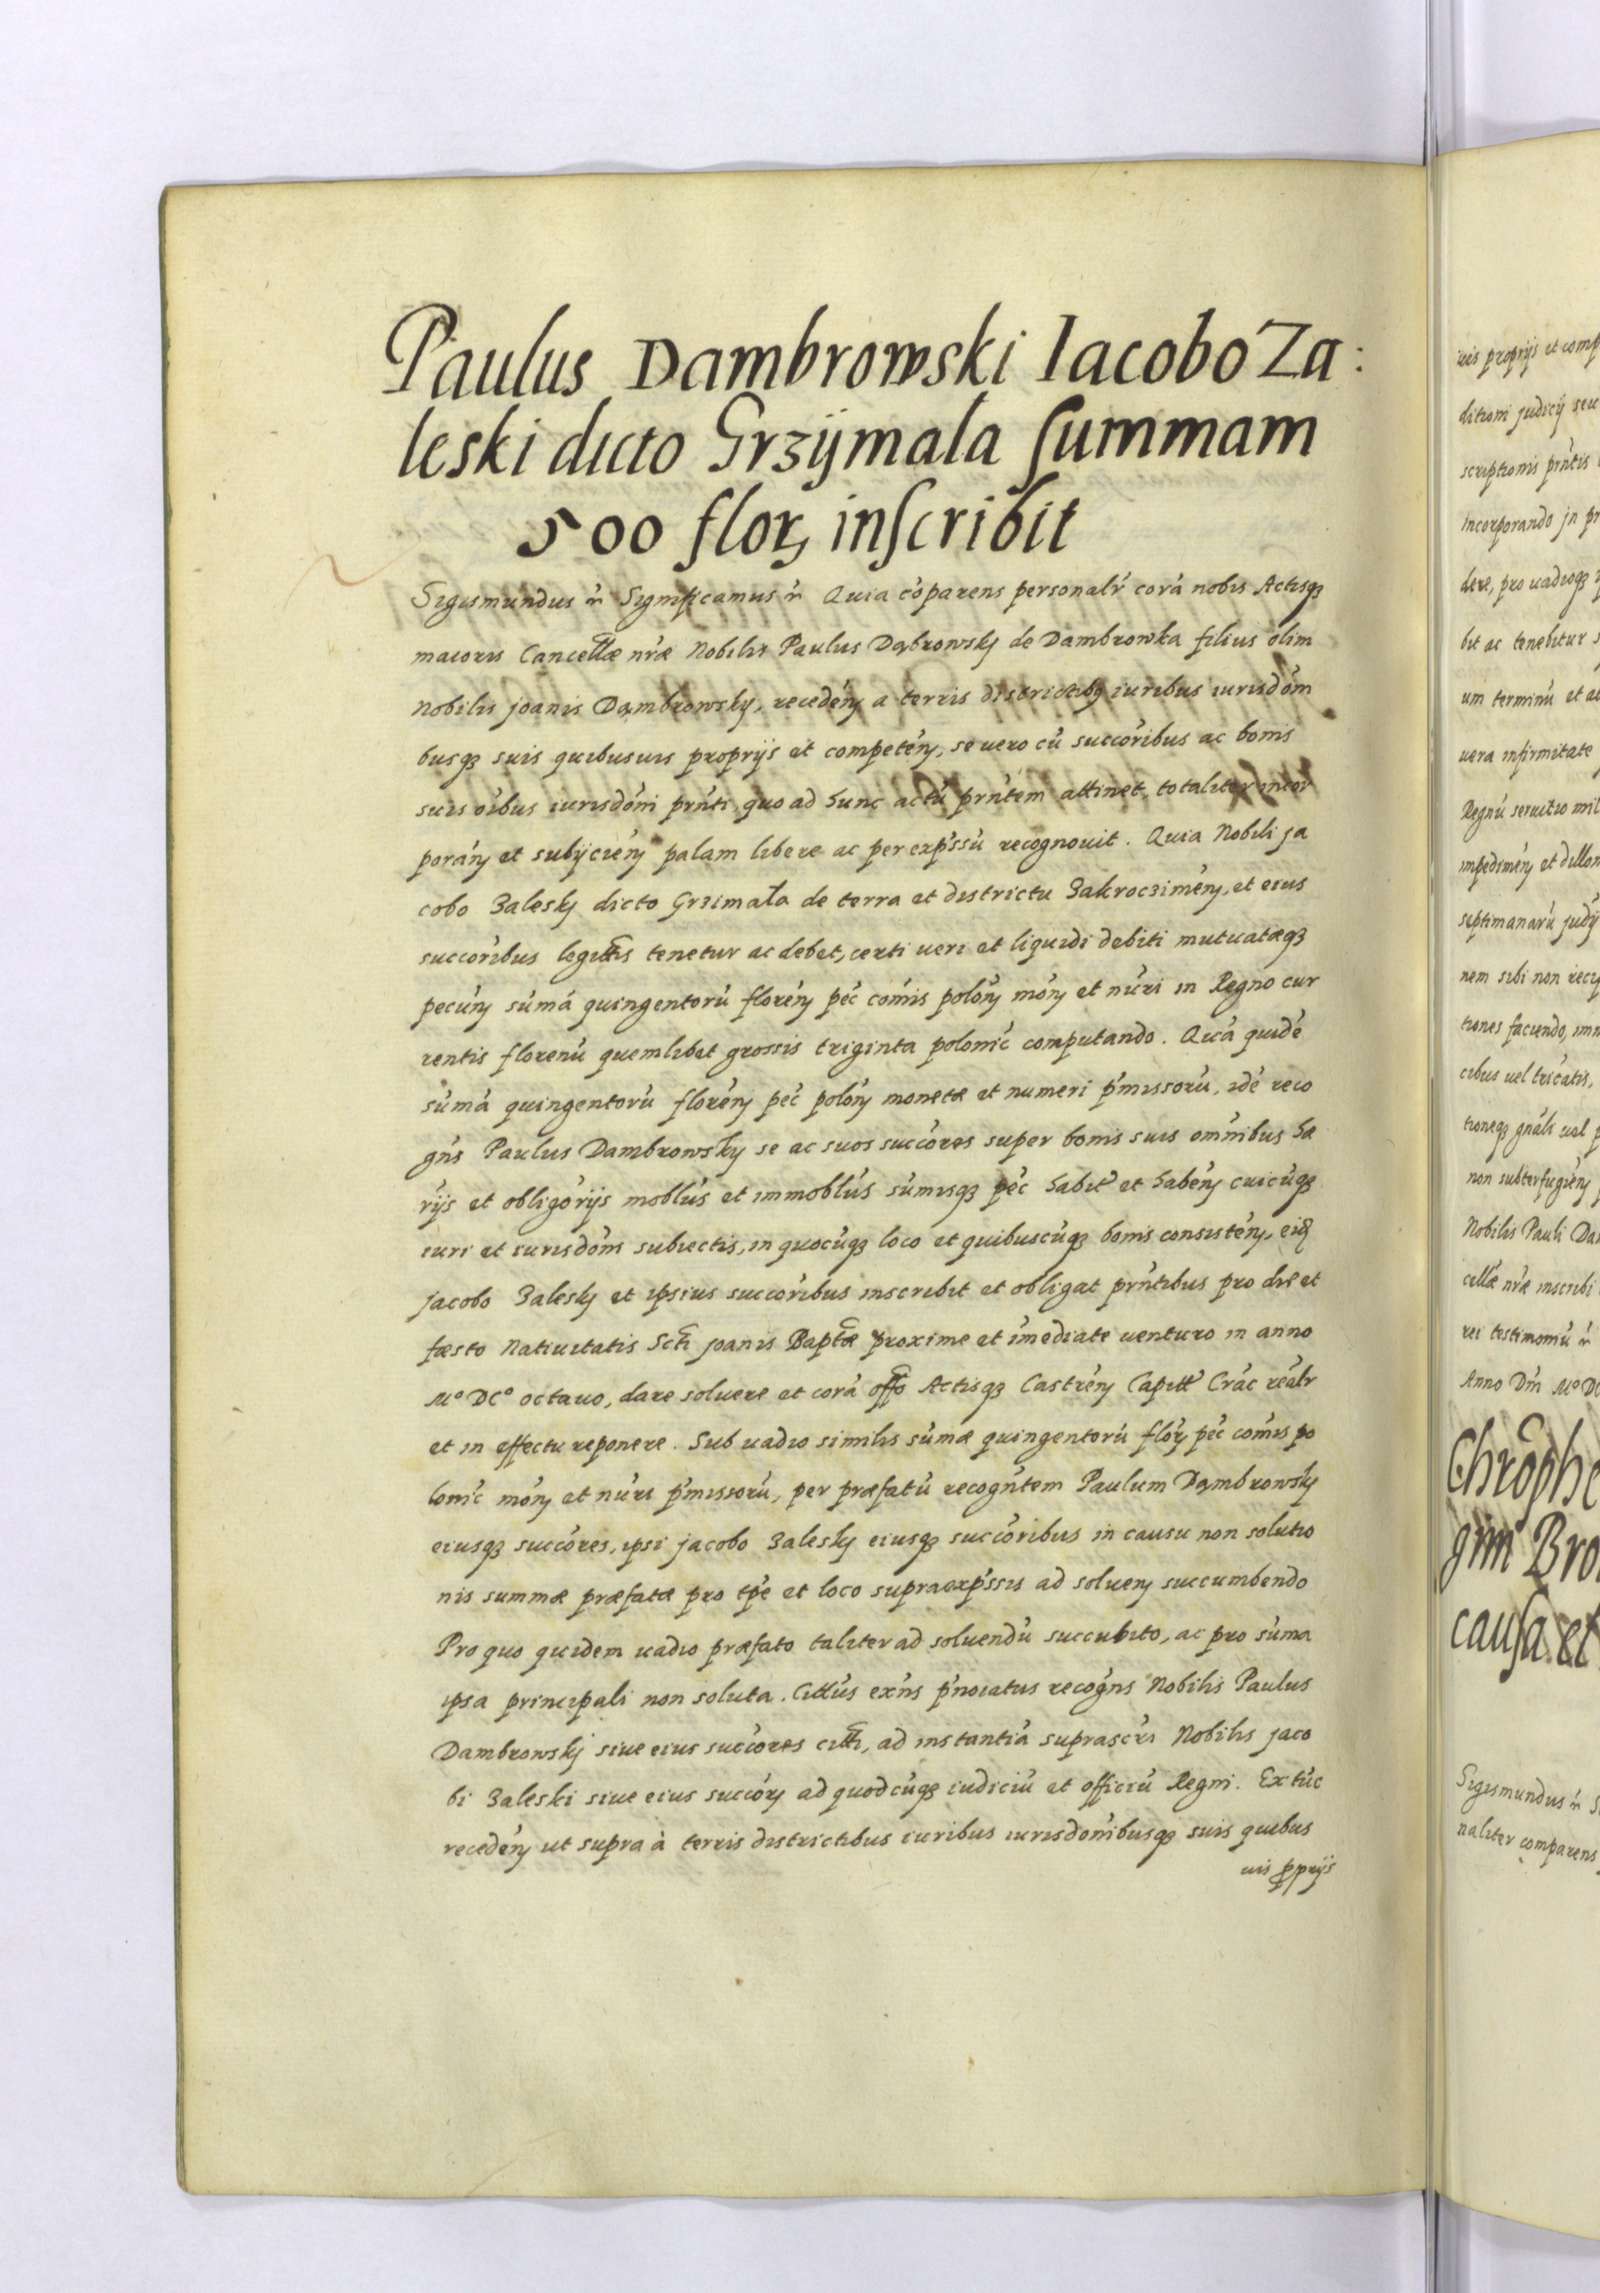 Paulus Dambrowski Iacobo Za:
leski dicto Grzÿmala summam
500 floꝝ inscribit
Sigismundus ꝛc̃ Significamus ꝛc̃ Quia cõparens personalr̃ corã nobis Actisqꝫ
maioris Cancellæ nr̃æ Nobilis Paulus Dąbrowskj de Dambrowka filius olim
Nobilis joanis Dąmbrowsky, recedeñ a terris districtibꝯ iuribus iurisdõni
busqꝫ suis quibusuis proprijs et competeñ, se uero cũ succõribus ac bonis
suis oĩbus iurisdõni prñti quo ad hunc actũ prñtem attinet, totaliter incor
porañ et subijcieñ palam libere ac per expr̃ssũ recognouit. Quia Nobili ja
cobo Zaleskj dicto Grzimała de terra et districtu Zakroczimeñ, et eius
succõribus legittĩs tenetur ac debet, certi ueri et liquidi debiti mutuatæqꝫ
pecuñ sũmã quingentorũ floreñ pec̃ com̃is poloñ moñ et nũri in Regno cur
rentis florenũ quemlibet grossis triginta polonic̃ computando. Quã quidẽ
sũmã quingentorũ floreñ pec̃ poloñ monetæ et numeri p̃missorũ, idẽ reco
gñs Paulus Dambrowsky se ac suos succõres super bonis suis omnibus hæ
r̃ijs et obligõrijs moblũs et immoblũs sũmisqꝫ pec̃ habit̃ et habeñ cuicũqꝫ
iuri et iurisdõni subiectis, in quocũqꝫ loco et quibuscũqꝫ bonis consisteñ, eid̃
jacobo Zalesky et ipsius succõribus inscribit et obligat prñtibus pro die et
fæsto Natiuitatis Sctĩ joanis Baptæ proxime et ĩmediate uenturo in anno
Mº DCº octauo, dare soluere et corã offõ Actisqꝫ Castreñ Capitt̃ Crac̃ reãlr
et in effectu reponere. Sub uadio similis sũmæ quingentorũ floꝝ pec̃ com̃is po
lonic̃ moñ et nũri p̃missorũ, per præfatũ recogñtem Paulum Dąmbrowsky
eiusqꝫ succõres, ipsi jacobo Zalesky eiusqꝫ succõribus in causu non solutio
nis summæ præfatæ pro tp̃e et loco supraexpr̃ssis ad solueñ succumbendo
Pro quo quidem uadio præfato taliter ad soluendũ succubito, ac pro sũma
ipsa principali non soluta. Cittũs exñs p̃noĩatus recogñs Nobilis Paulus
Dambrowskj siue eius succõres cittĩ, ad instantiã suprascr̃i Nobilis jaco
bi Zaleski siue eius succõꝝ ad quodcũqꝫ iudiciũ et officiũ Regni. Ex tũc
recedeñ ut supra à terris districtibus iuribus iurisdonĩbusqꝫ suis quibus
uis ꝓprijs
uis proprijs et comp
ditioni judicij seu
scriptionis prñtis
Incorporando in pr
dere, pro uadioqꝫ
bit ac tenebitur
um terminũ et
uera infirmitate
Regnũ seruitio mil
impedimeñ et
septimanarũ judĩ
nem sibi non
tiones faciendo, imm
cibus uel tricatis,
tioneqꝫ gnãli uel
non subterfugieñ
Nobilis Pauli Da
cellæ nr̃æ inscribi
rei testimoniũ ꝛc̃
Anno Dm̃ Mº D
Chrõphe
gini Bro
causa et
Sigismundus ꝛc̃ S
naliter comparens